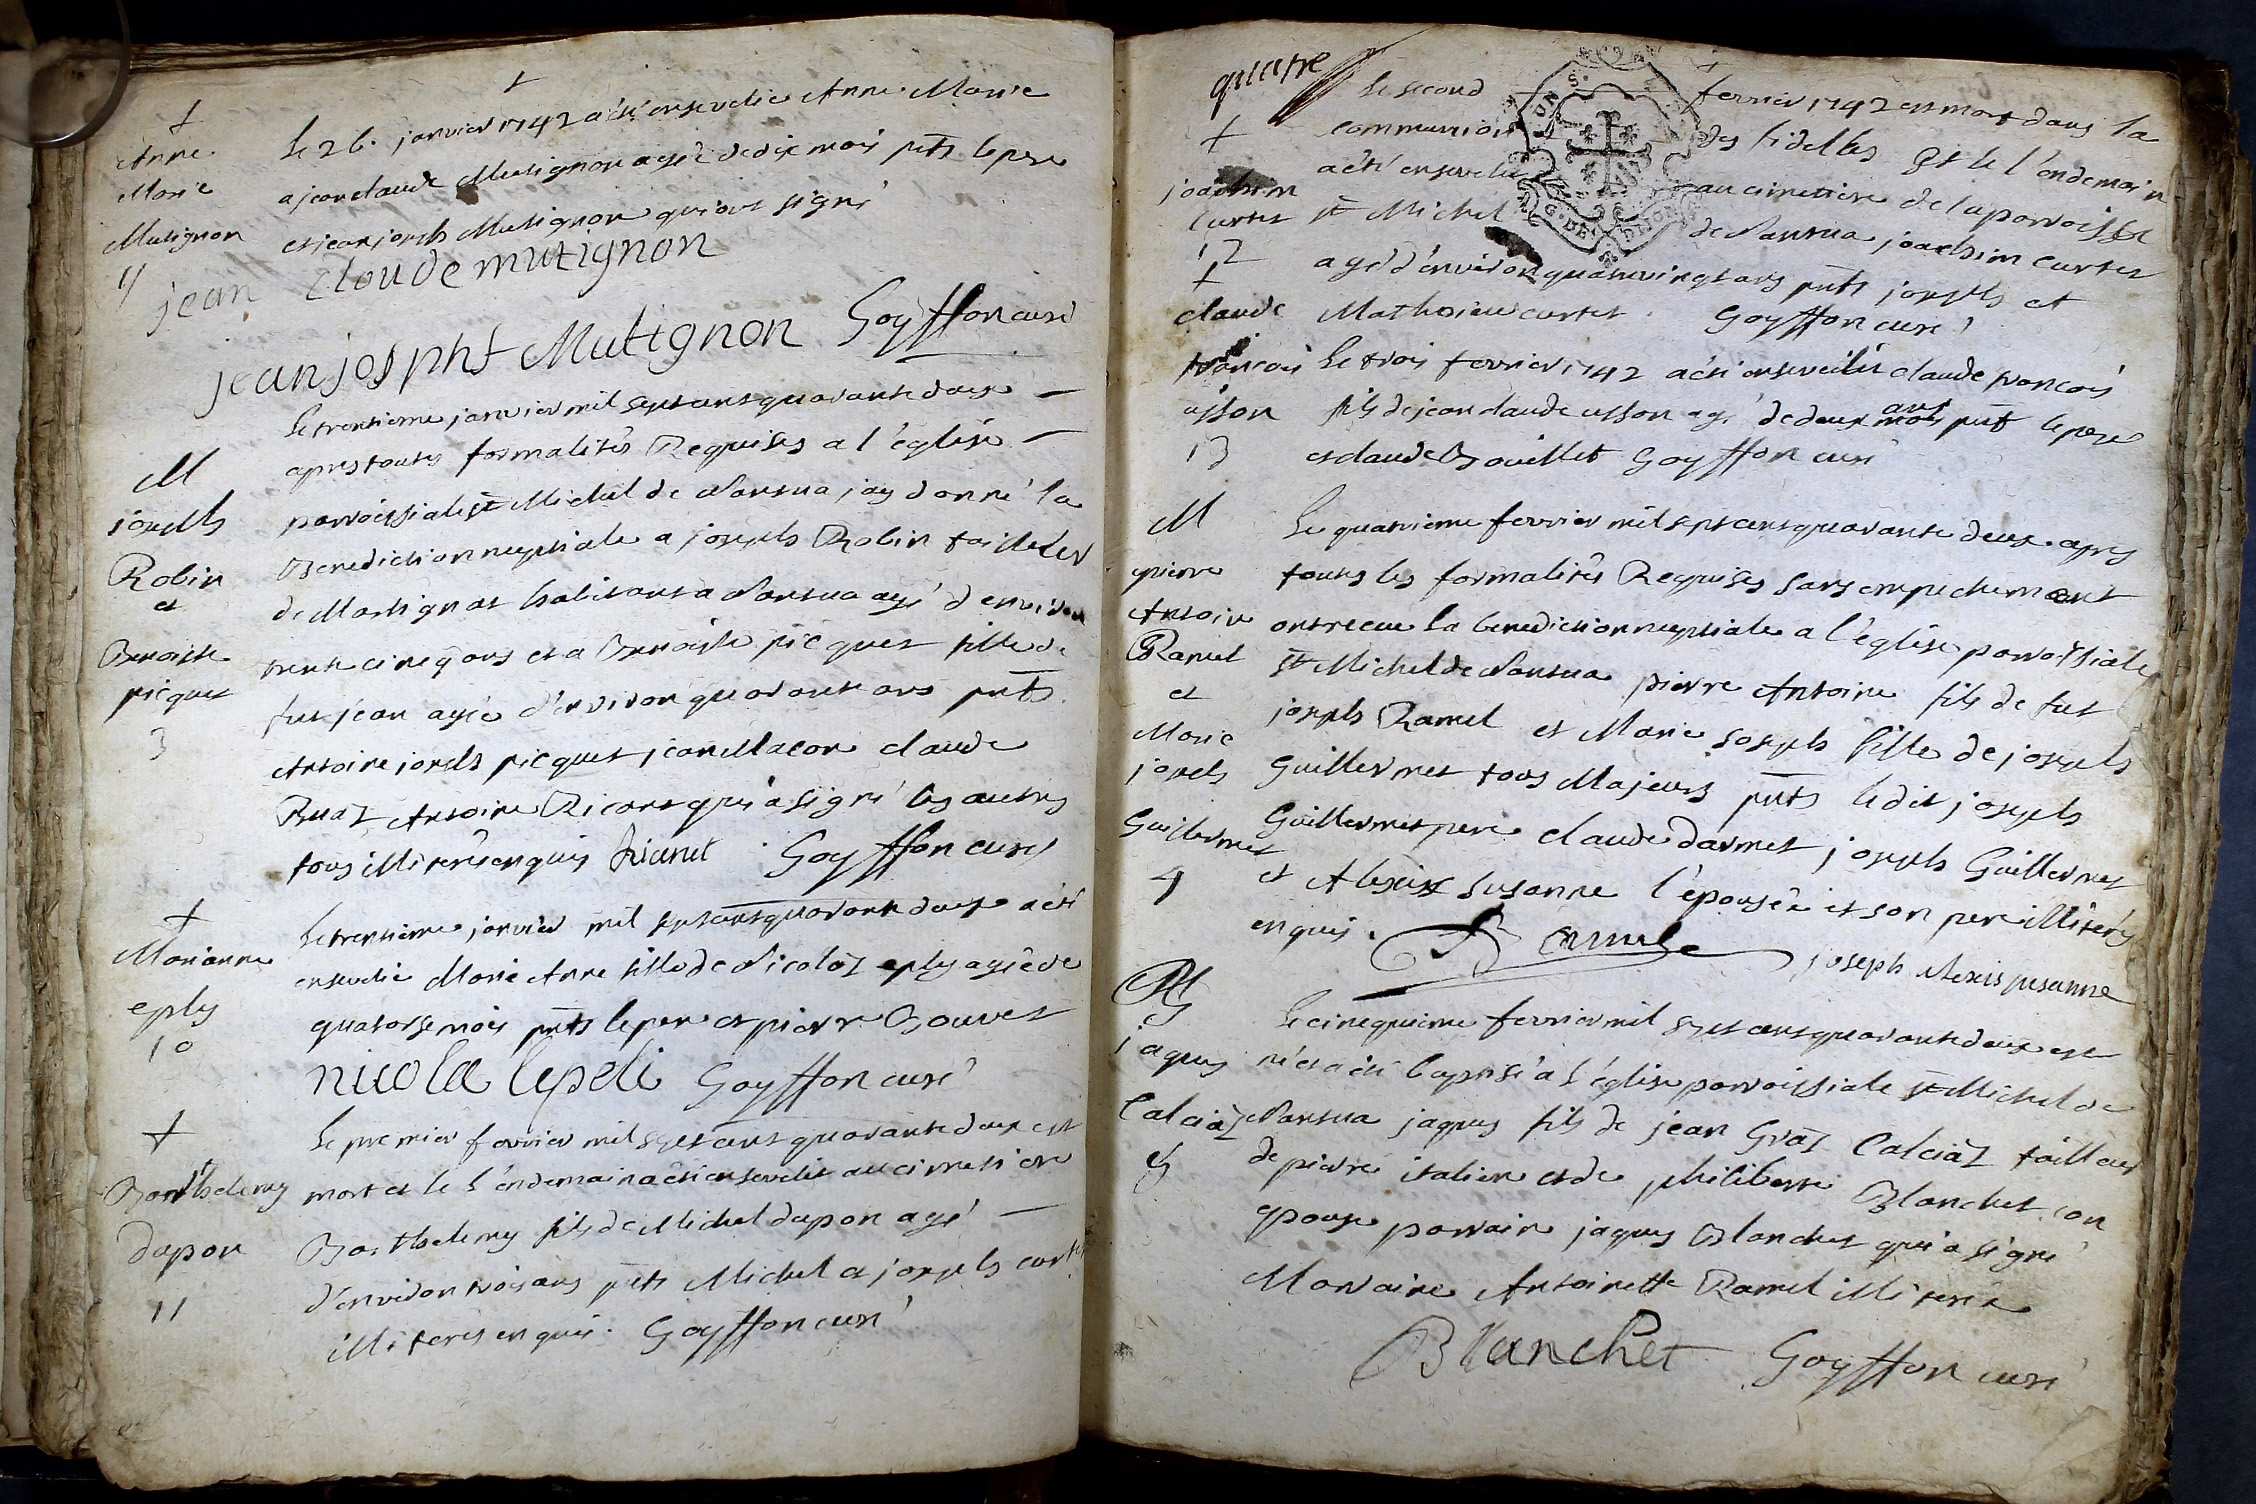 +
+
Anne
Marie
Mutignon
9
Le 26. janvier 1742 a été ensevelie Anne Marie
a jean claude Mutignon agée de dix mois pnts le pere
et jean joseph Mutignon qui ont signé
jean claude mutignon
jean josphs Mutignon Goyffon curé
M
joseph
Robin
et
Benoiste
picquet
3
Le trentieme janvier mil sept cent quarante deux
apres toutes formalités Requises a l'église
parroissiale st Michel de Nantua jay donné la
Benediction nuptiale a joseph Robin tailleur
de Martignat habitant a Nantua agé d'environ
trente cinq ans et a Benoiste picquet fille de
fut jean agée d'environ quarante ans pnts.
Antoine joseph picquet jean Macon claude
Ruaz Antoine Ricant qui a signé les autres
tous illiterés enquis Goyffon curé
+
Marianne
eply
10
Le trentieme janvier mil sept cent quarante deux a été
ensevelie Marie Anne fille de Nicolaz eply agée de
quatorse mois pnts le pere et pierre Bouvet
nicola lepeli Goyffon curé
+
Barthelemy
dapon
11
Le premier fevrier mil sept cent quarante deux est
mort et le l'endemain a été ensevelit au cimetiere
Barthelemy fils de Michel dapon agé
d'environ trois ans pnts Michel et joseph curtet
illiterés enquis. Goyffon curé
quatre
+
joachim
Curtet
12
Le second fevrier 1742 est mort dans la
communion des fidelles et le l'endemain
a été ensevelit au cimetiere de la parroisse
st Michel de Nantua joachim Curtet
agé d'environ quatrevingt ans pnts joseph et
Mathieu curtet. Goyffon curé
+
claude
francois
usson
13
Le trois fevrier 1742 a été ensevelit claude francois
fils de jean claude usson agé de deux ans mois pnt le pere
et claude Bouillet Goyffon curé
M
pierre
Antoine
Ramel
et
Marie
joseph
Guillermet
4
Le quatrieme fevrier mil sept cent quarante deux. apres
toutes les formalités Requises sans empechement
ont receu la benediction nuptiale a l'église parroissiale
st Michel de Nantua pierre Antoine fils de fut
joseph Ramel et Marie joseph fille de joseph
Guillermet tous Majeurs pnts ledit joseph
Guillermet pere claude darmet joseph Guillermet
et Alexis susanne l'épousée et son pere illiterés
enquis. Ramel joseph Alexis susanne
B
jaques
Calciaz
5
Le cinquieme fevrier mil sept cent quarante deux est
né et a été baptisé a l'église parroissiale st Michel de
Nantua jaques fils de jean Graz Calciaz tailleur
de pierre italien et de philiberte Blanchet son
epouse parrain jaques Blanchet qui a signé
Marraine Antoinette Ramel illiterée
Blanchet Goyffon curé